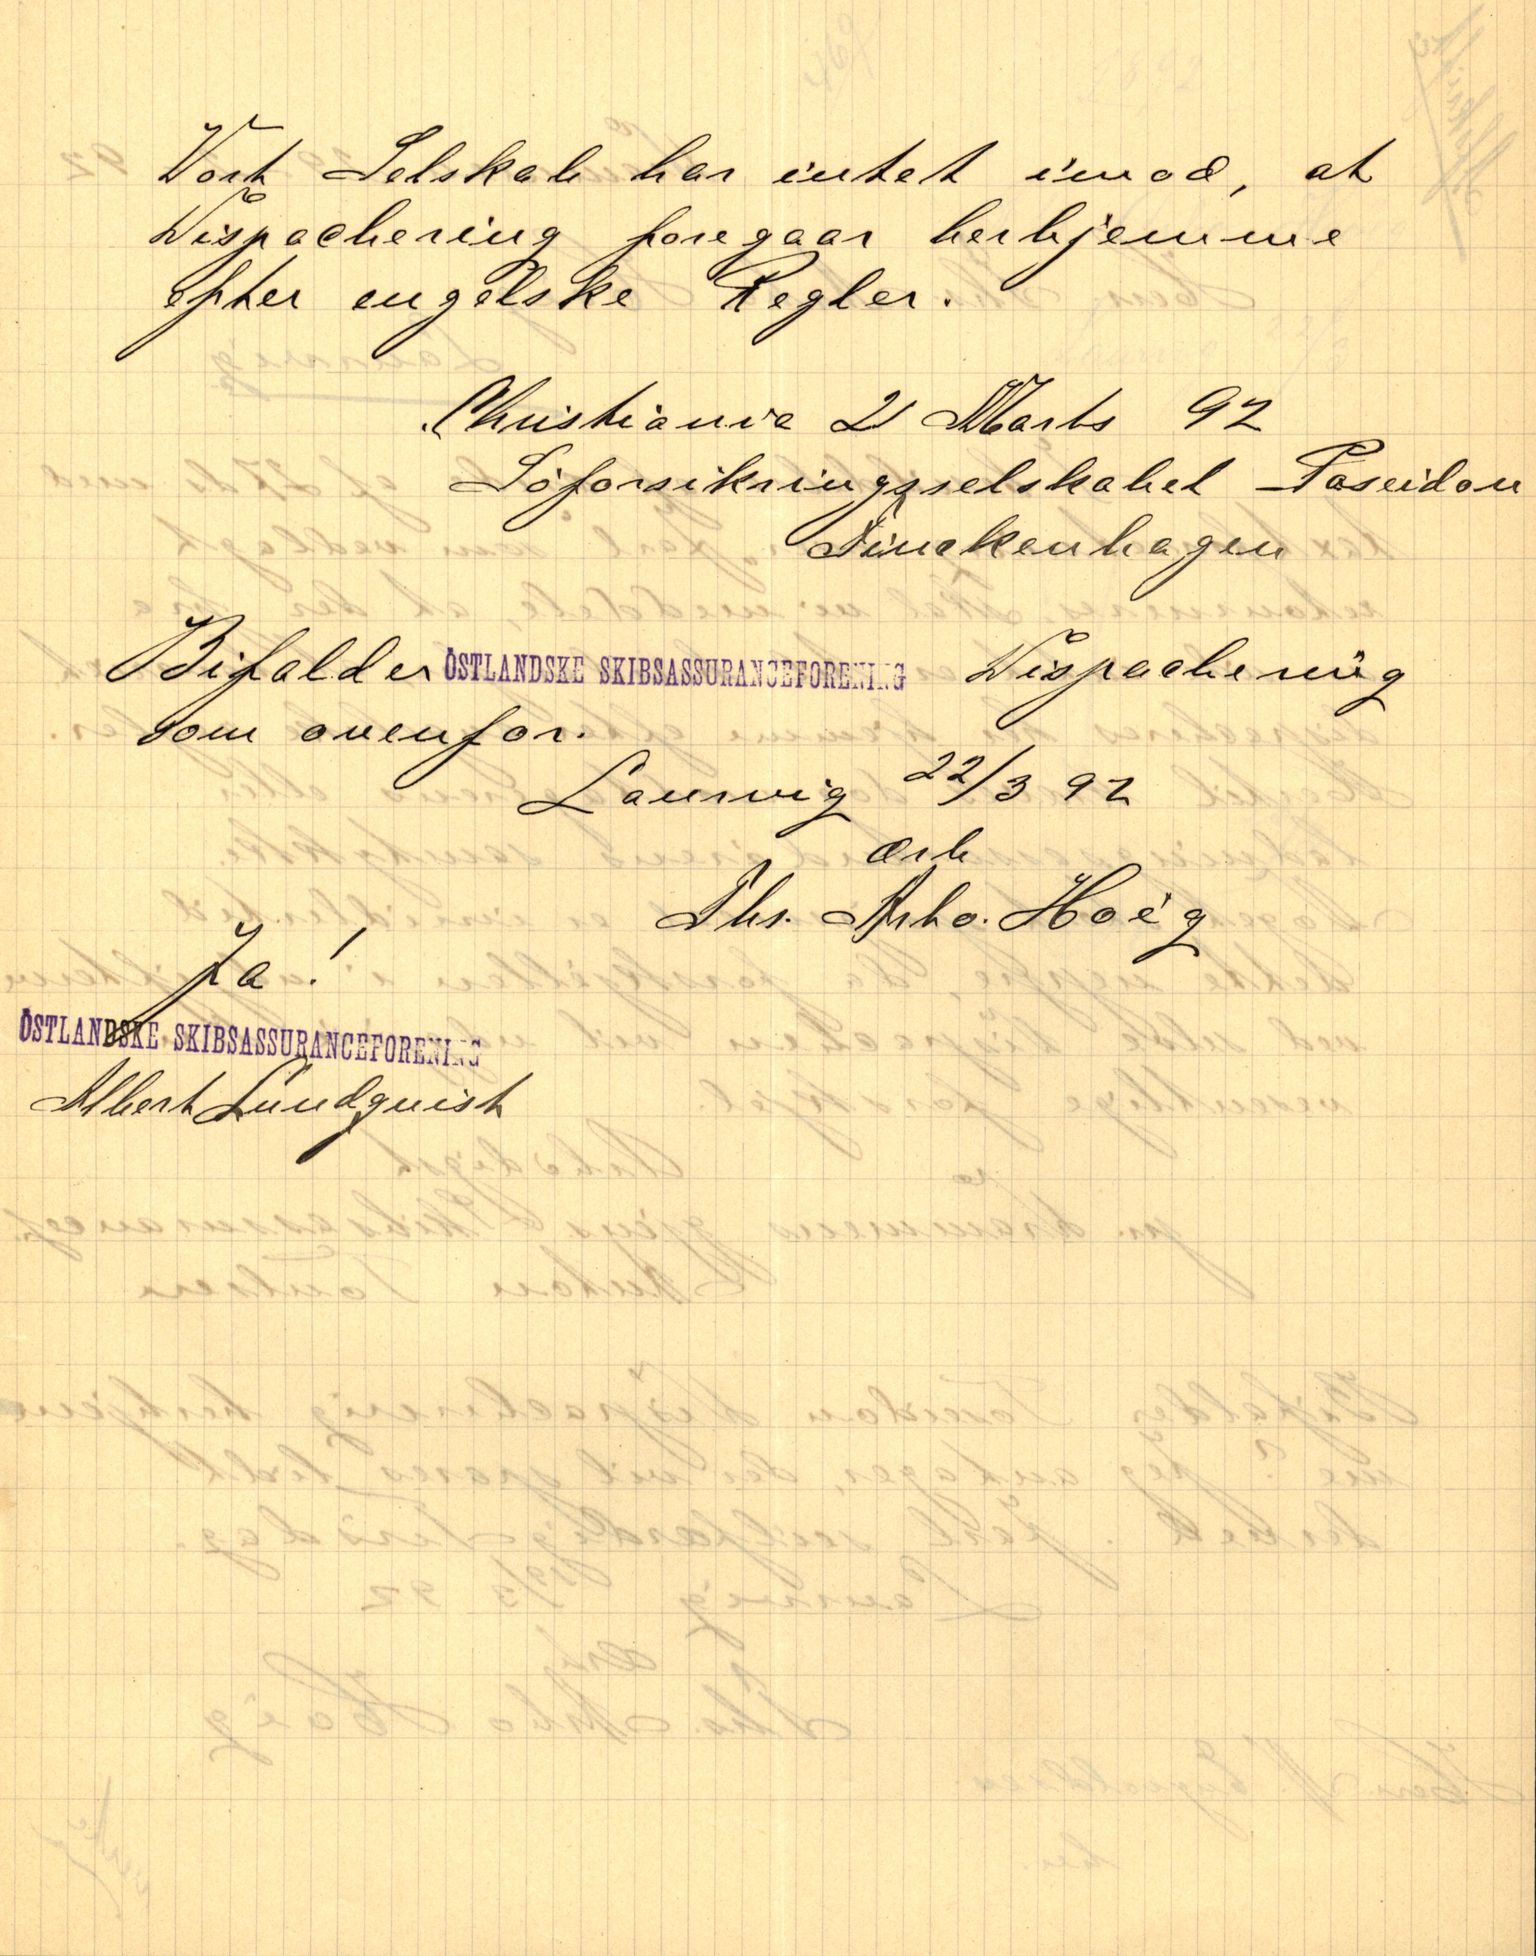 Vort Selskab har intet imod, at
Dispachering foregaar herhjemme
efter engelske Regler.
Christiania 21 Marts 92
Söforsikringsselskabet Poseidon
Finckenhagen
Bifalder ÖSTLANDSKE SKIBSASSURANCEFORENING Dispachering
som ovenfor.
Laurvig 22/3 92
ærb
Ths. Arbo. Høeg
Ja!
ÖSTLANDSKE SKIBSASSURANCEFORENING
Albert Lundquist